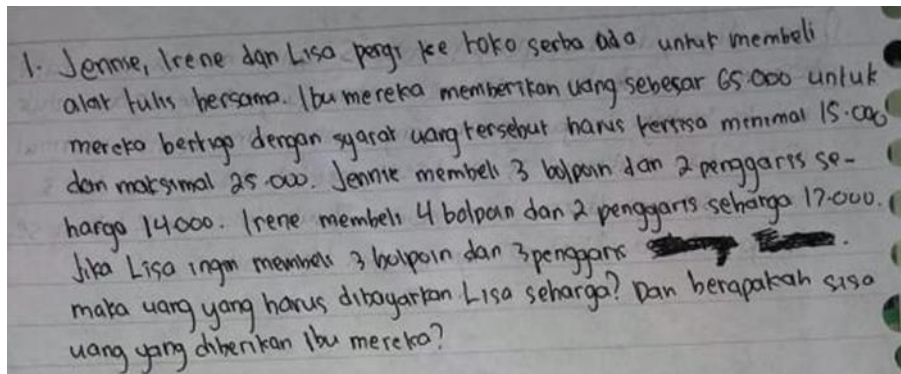 1. Jennie, Irene dan Lisa pergi ke toko serba ada untuk membeli
alat tulis bersama. Ibu mereka memberikan uang sebesar 65.000 untuk
mereka bertiga dengan syarat uang tersebut harus tersisa minimal 15.000
dan maksimal 25.000. Jennie membeli 3 bolpoin dan 2 penggaris se-
harga 14.000. Irene membeli 4 bolpoin dan 2 penggaris seharga 17.000.
Jika Lisa ingin membeli 3 bolpoin dan 3 penggaris .
maka uang yang harus dibayarkan Lisa seharga? Dan berapakah sisa
uang yang diberikan Ibu mereka?